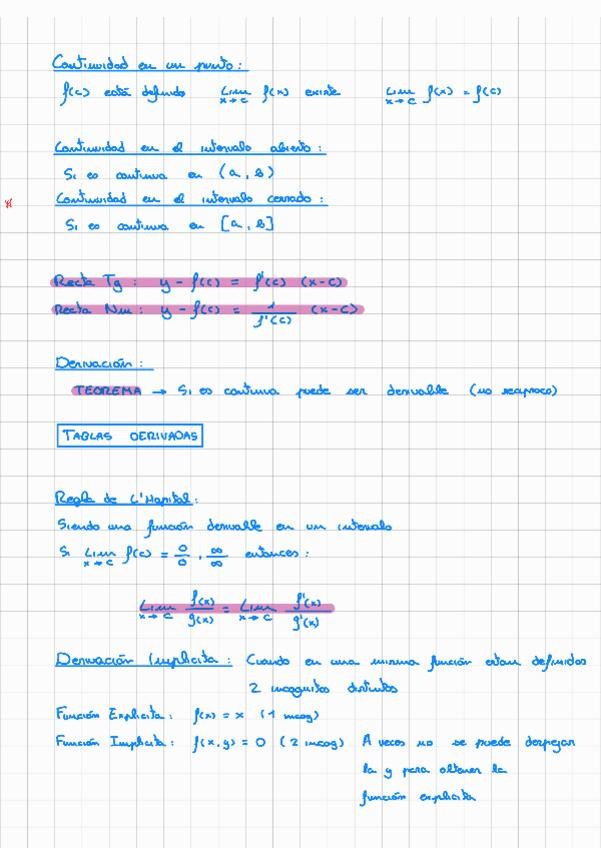 Continuidad en un punto:
f(c) está definido lim x→c f(x) existe lim x→c f(x) = f(c)
Continuidad en el intervalo abierto:
Si es continua en (a, b)
* Continuidad en el intervalo cerrado:
Si es continua en [a, b]
Recta Tg: y - f(c) = f'(c) (x-c)
Recta Nm: y - f(c) = 1/f'(c) (x-c)
Derivación:
TEOREMA → Si es continua puede ser derivable (no recíproco)
TABLAS DERIVADAS
Regla de L'Hopital:
Siendo una función derivable en un intervalo
Si lim x→c f(c) = 0/0, ∞/∞ entonces:
lim x→c f(x)/g(x) = lim x→c f'(x)/g'(x)
Derivación Implícita: Cuando en una misma función están definidas
2 incognitas distintas
Función Explícita: f(x) = x (1 incog)
Función Implícita: f(x,y) = 0 (2 incog) A veces no se puede despejar
la y para obtener la
función explícita